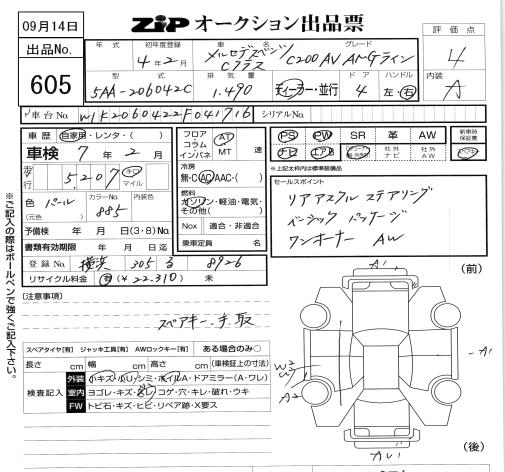 09月14日
ZiP オークション出品票
出品No.
605
評価点
4
内装
A
年式
初年度登録
4年2月
車名
メルセデスベンツ
Cクラス
グレード
C200 AV AMGライン
型式
5AA-206042C
排気量
1,490
ディーラー・並行
ドア
4
ハンドル
左・右
車台No.
W1K2060422F041716
シリアルNo.
車歴
自家用・レンタ・( )
車検 7年2月
走行
5,207
キロ
マイル
色 パール
(元色)
カラーNo.
885
内装色
予備検 年 月 日(3・8)No.
書類有効期限 年 月 日迄
登録No. 横浜 305 ミ 8926
リサイクル料金 有(¥22,310) 未
フロア
コラム
インパネ
AT
MT
速
冷房
無・C・AC・AAC・( )
燃料
ガソリン・軽油・電気・
その他( )
Nox 適合・非適合
乗車定員 名
PS PW SR 革 AW
ナビ エアB
社外
ナビ
社外
AW
新車時
保証書
※上記太枠内は標準装備品
セールスポイント
リアアスクル ステアリング
ベーシック パッケージ
ワンオーナー AW
[注意事項]
スペアキー 手取
スペアタイヤ[有] ジャッキ工具[有] AWロックキー[有] ある場合のみ○
長さ cm 幅 cm 高さ cm(車検証上の寸法)
検査記入
外装 小キズ・小リ・シミ・ホイルA・ドアミラー(A・ワレ)
室内 ヨゴレ・キズ・スレ・コゲ・穴・キレ・破れ・ウキ
FW トビ石・キズ・ヒビ・リペア跡・X要ス
※ご記入の際はボールペンで強くご記入下さい。
(前)
A1
A1
A2
(後)